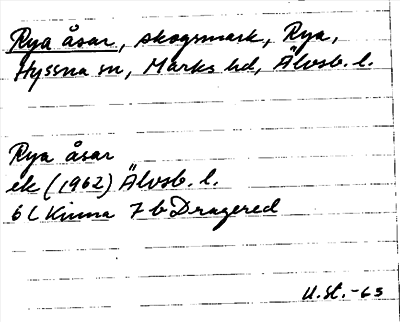 Rya åsar, skogsmark, Rya,
Hyssna sn, Marks hd, Älvsb. l.
Rya åsar
ek (1962) Älvsb. l.
6 C Kinna 7 b Dragered
U.St.-63